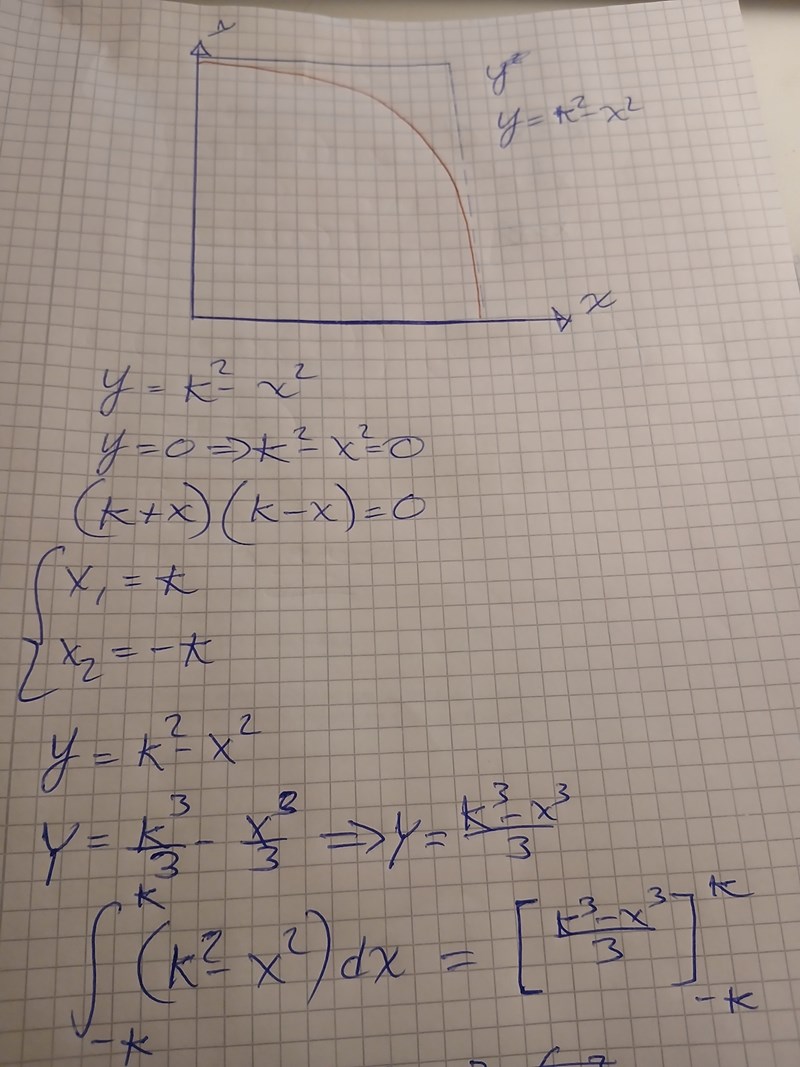 y
y=
y = k² - x²
x
y = k² - x²
y = 0 ⇒ k² - x² = 0
(k + x)(k - x) = 0
{ x₁ = k
x₂ = -k
y = k² - x²
Y = k³/3 - x³/3 ⇒ Y = (k³ - x³)/3
∫₋ₖᵏ (k² - x²) dx = [(k³ - x³)/3]₋ₖᵏ